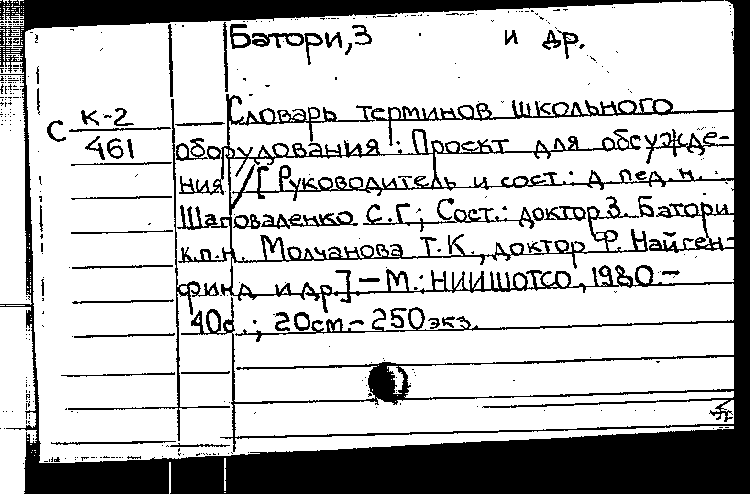 Батори,З и др.
С К-2
461
Словарь терминов школьного
оборудования : Проект для обсужде-
ния / [ Руководитель и сост.: д. пед. н.
Шаповаленко С.Г.; Сост.: доктор З. Батори
к.п.н. Молчанова Т.К., доктор Р. Найген-
финд и др.]. — М.: НИИШОТСО, 1980. —
40с.; 20см. — 250 экз.